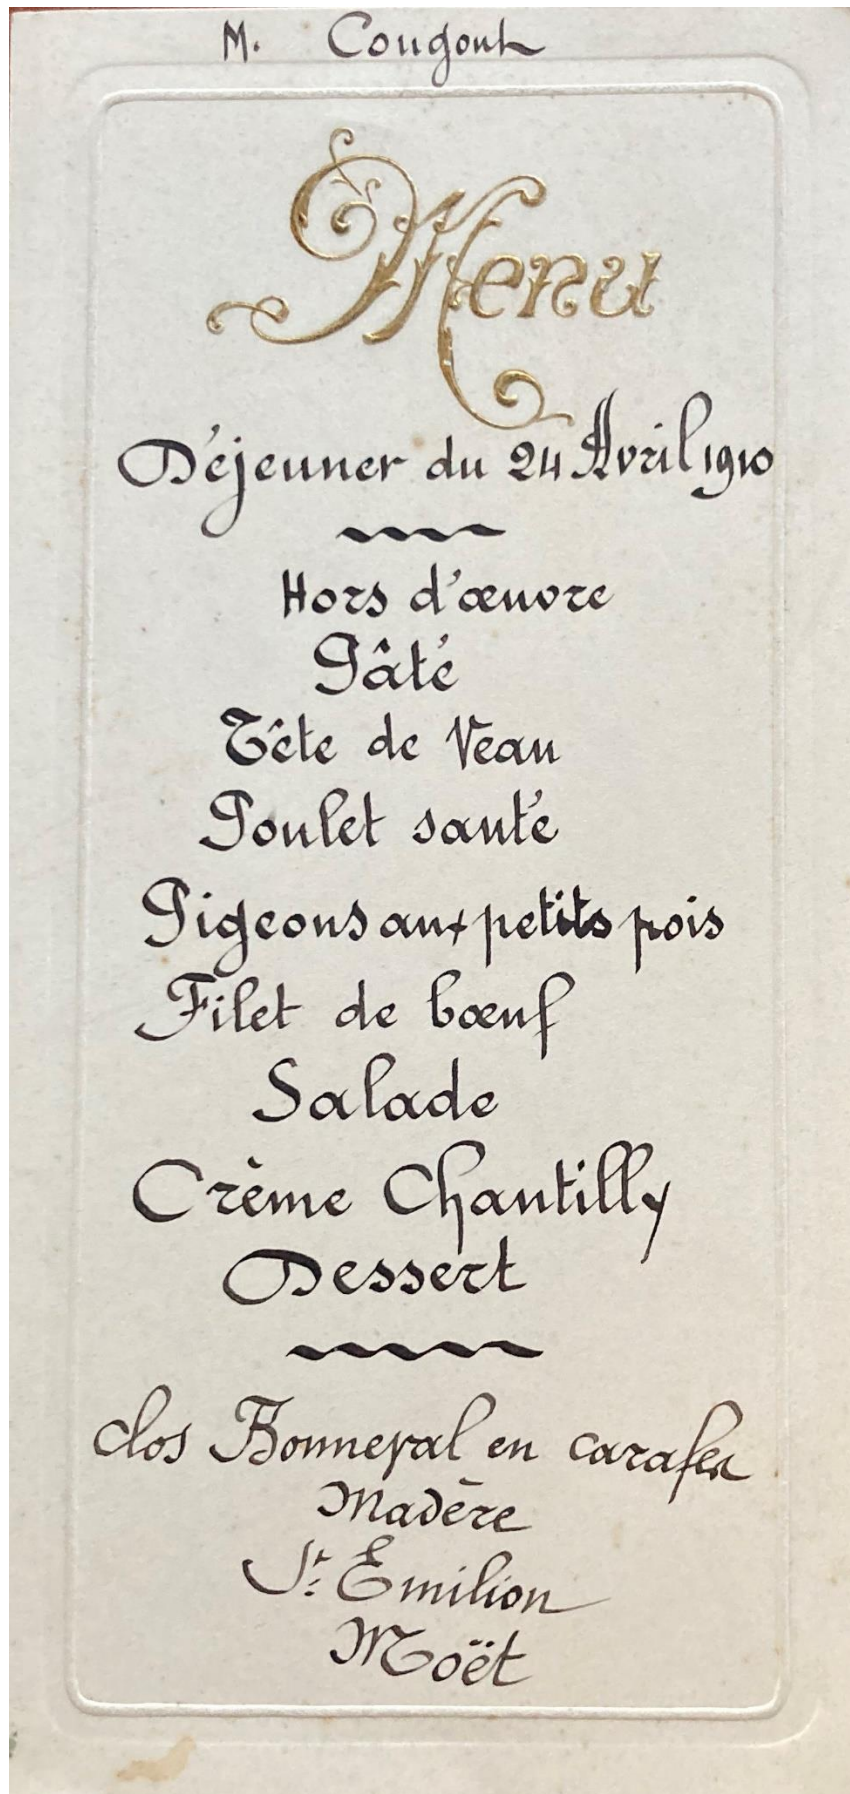 M. Cougoul
Menu
Déjeuner du 24 Avril 1910
Hors d'œuvre
Pâté
Tête de Veau
Poulet sauté
Pigeons aux petits pois
Filet de bœuf
Salade
Crème Chantilly
Dessert
Clos Bonneval en carafes
Madère
St. Emilion
Moët